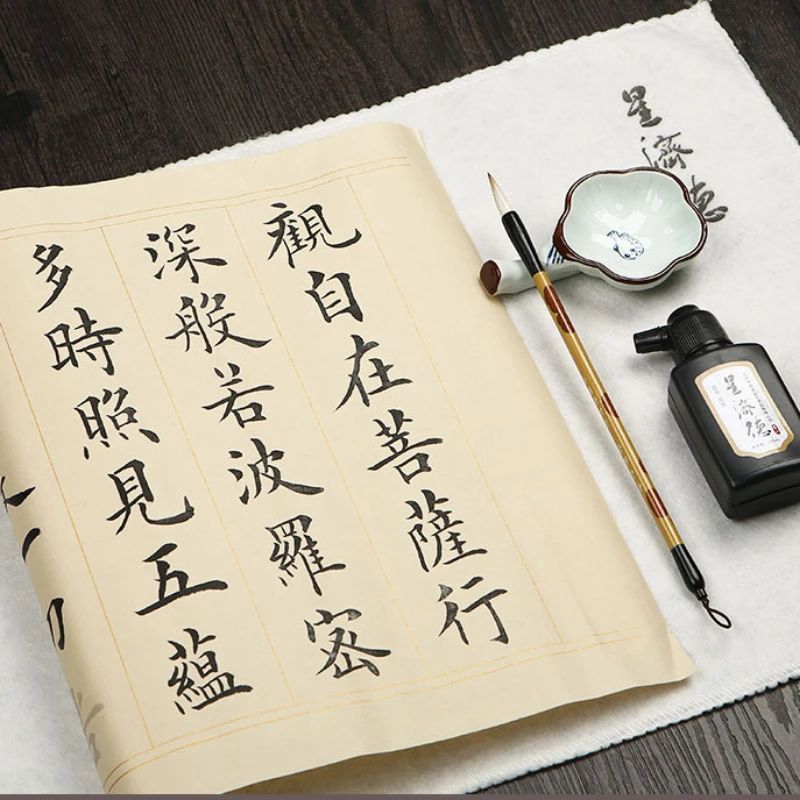 觀自在菩薩行
深般若波羅密
多時照見五蘊
星濟德
星濟德